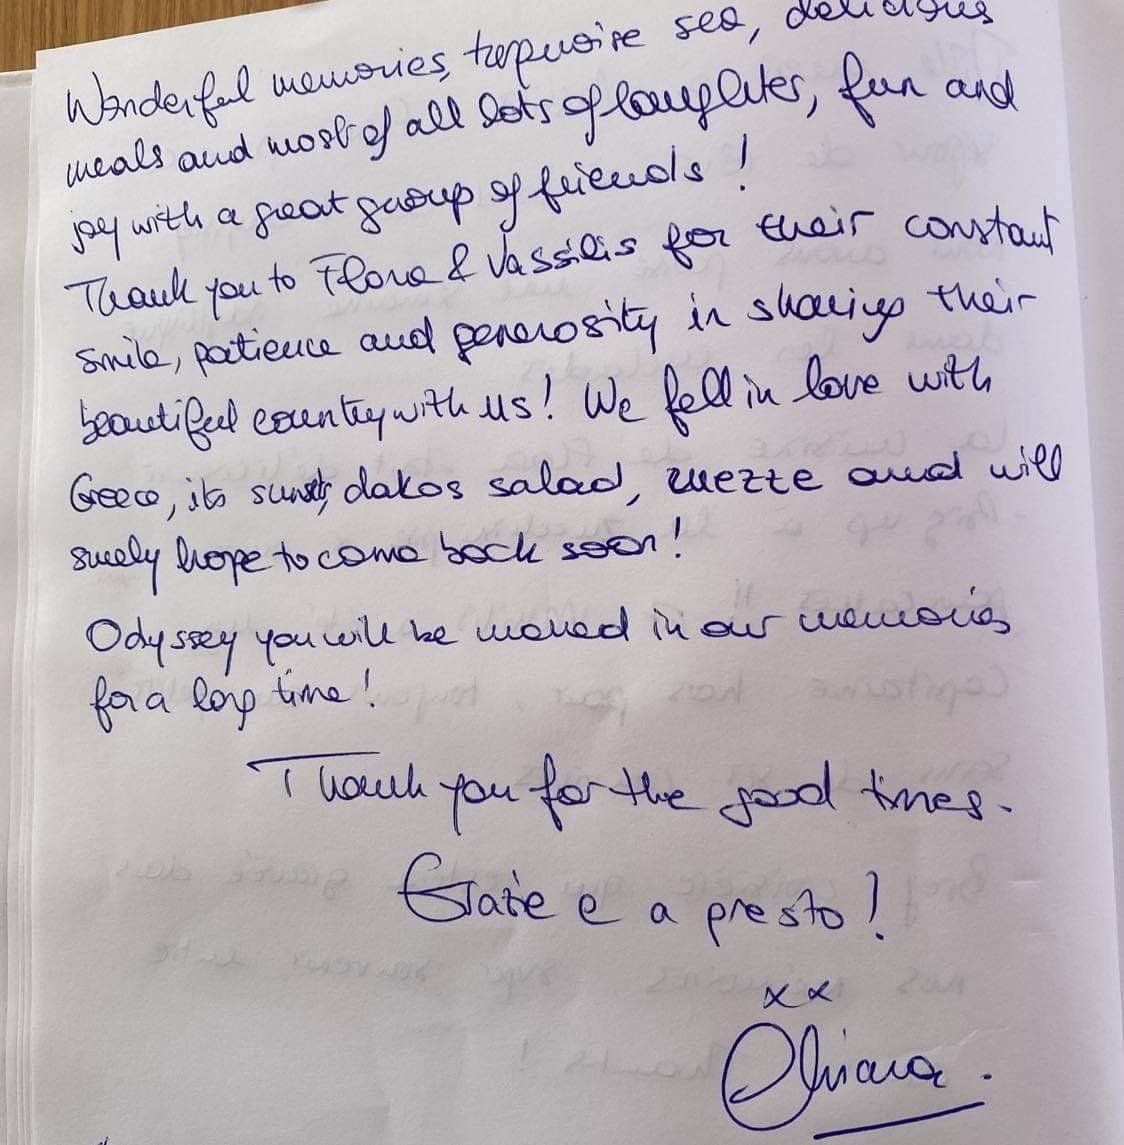 Wonderful memories, turquoise sea, delicious
meals and most of all lots of laughter, fun and
joy with a great group of friends!
Thank you to Flora & Vassilis for their constant
smile, patience and generosity in sharing their
beautiful country with us! We fell in love with
Greece, its sunsets, dakos salad, mezze and will
surely hope to come back soon!
Odyssey you will be moored in our memories
for a long time!
Thank you for the good times.
Grazie e a presto!
xx
Chiara.